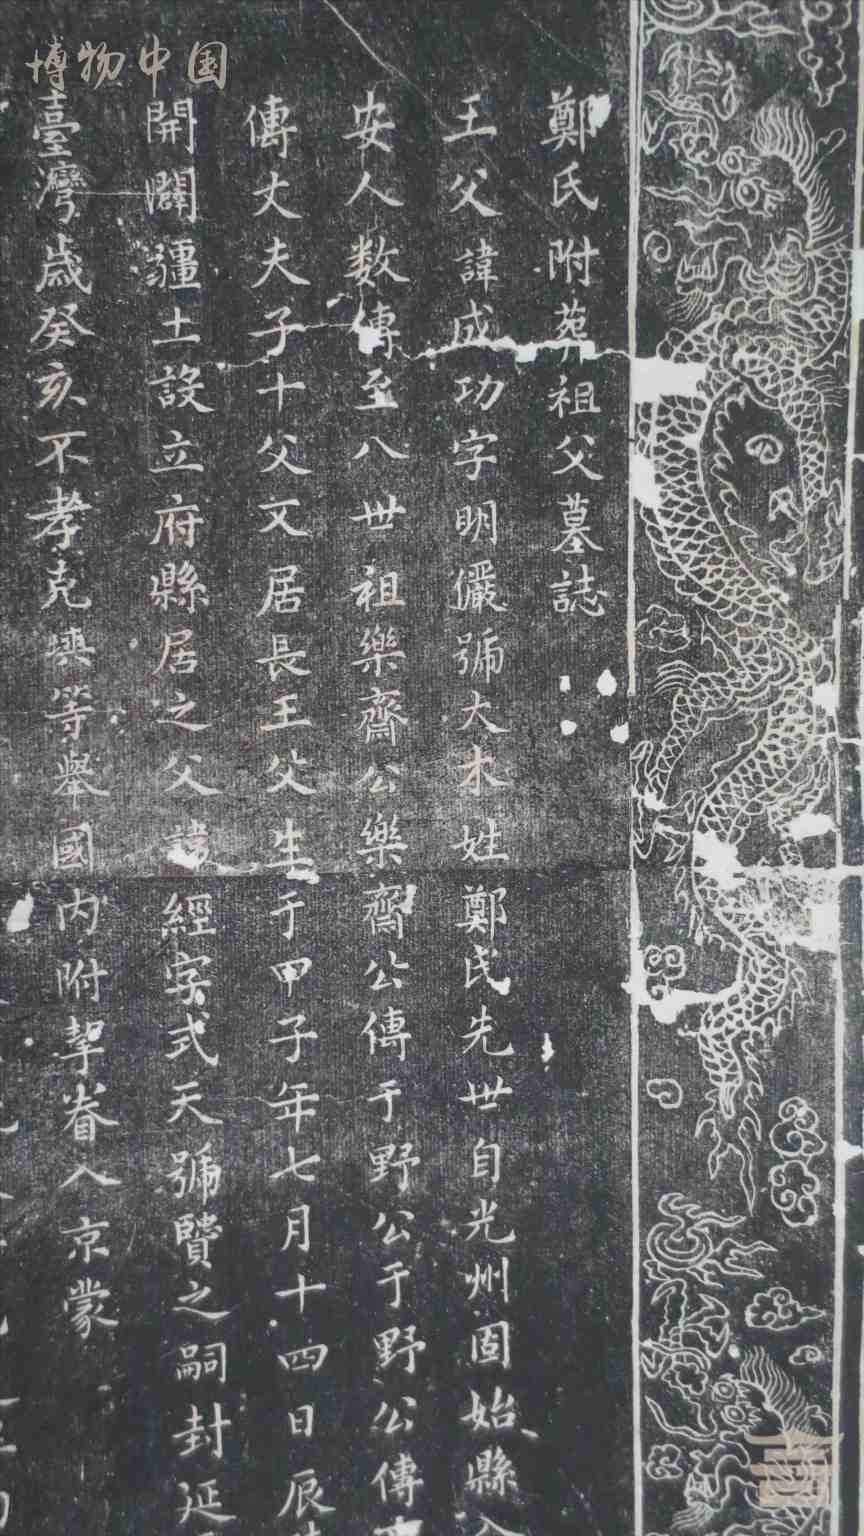 博物中国
鄭氏附葬祖父墓誌
王父諱成功字明儼號大木姓鄭氏先世自光州固始縣入
安人数傳至八世祖樂齋公樂齋公傳于野公于野公傳
傳丈夫子十父又居長王父生于甲子年七月十四日辰
開闢疆土設立府縣居之父諱經字式天號賢之嗣封延
臺灣歲癸亥不孝克塽等舉國内附挈眷入京蒙